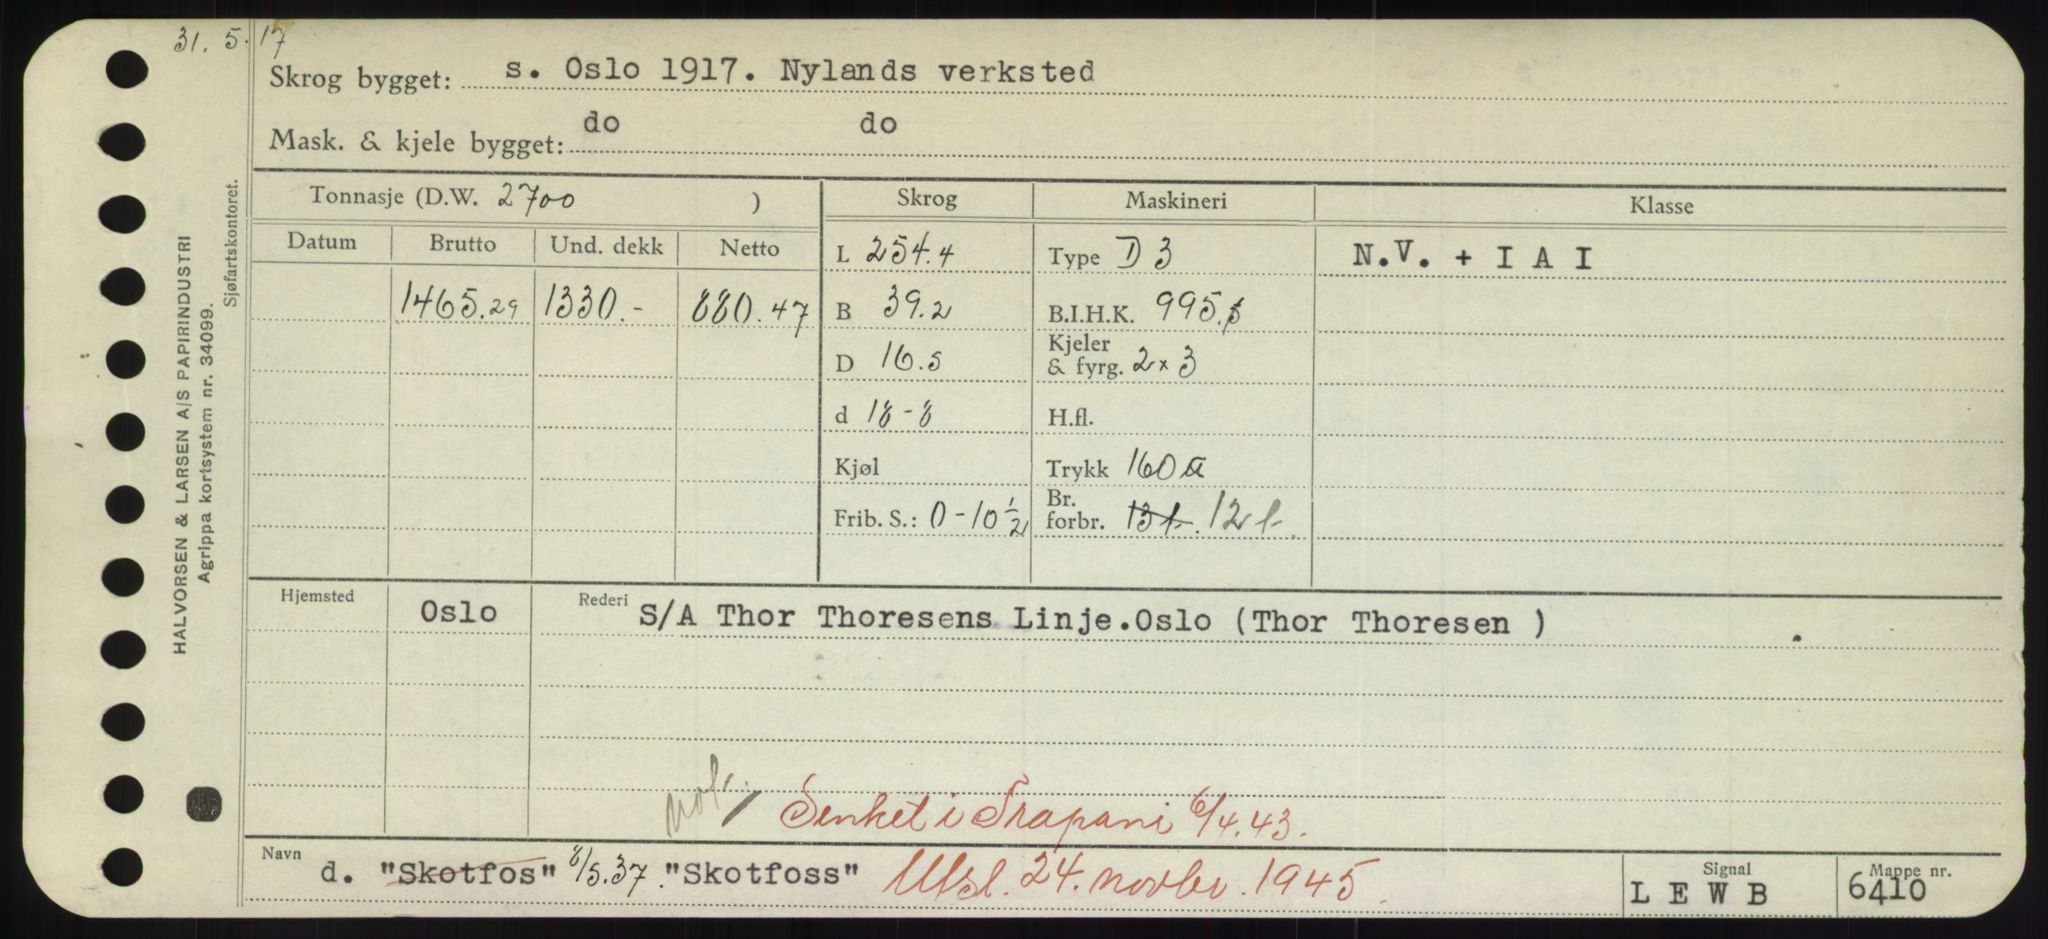 31. 5. 17
Skrog bygget: s. Oslo 1917. Nylands verksted
Mask. & kjele bygget: do do
HALVORSEN & LARSEN A/S PAPIRINDUSTRI
Agrippa kortsystem nr. 34099.
Sjøfartskontoret.
Tonnasje (D.W. 2700 ) Skrog Maskineri Klasse
Datum Brutto Und. dekk Netto
L 254.4 Type D 3 N.V. + I A I
1465.29 1330.- 880.47 B 39.2 B.I.H.K. 995.
D 16.5 Kjeler & fyrg. 2 x 3
d 18-8 H.fl.
Kjøl Trykk 160
Frib. S.: 0-10 1/2 Br. forbr. 13 t. 12 t.
Hjemsted Oslo Rederi S/A Thor Thoresens Linje.Oslo (Thor Thoresen )
Senket i Trapani 6/4.43.
Navn d. "Skotfos" 8/5.37. "Skotfoss" Utsl. 24. novbr. 1945. Signal LEWB Mappe nr. 6410